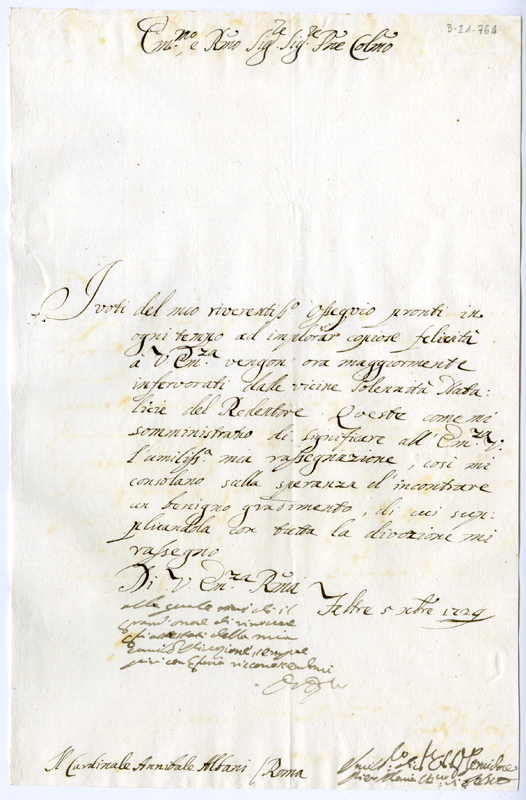 3-21-764
Em.mo e Rmo Sig.re Sig.re Pne Colmo
I voti del mio riverentiss.o Ossequio pronti in
ogni tempo ad implorar copiose felicità
a V Em.za vengon ora maggiormente
infervorati dalle vicine solennità Nata:
lizie del Redentore. Queste come mi
somministrano di significare all' Em.za V:
l'umiliss.a mia rassegnazione, così mi
consolano sulla speranza d'incontrare
un benigno gradimento, di cui sup:
plicandola con tutta la divozione mi
rassegno
Di V Em.za Rma
Feltre 5 Xbre 1729
alla quale
grand'onore di rinovare
della mia
sempre
più con
Il Cardinale Annibale Albani / Roma
Pier Maria